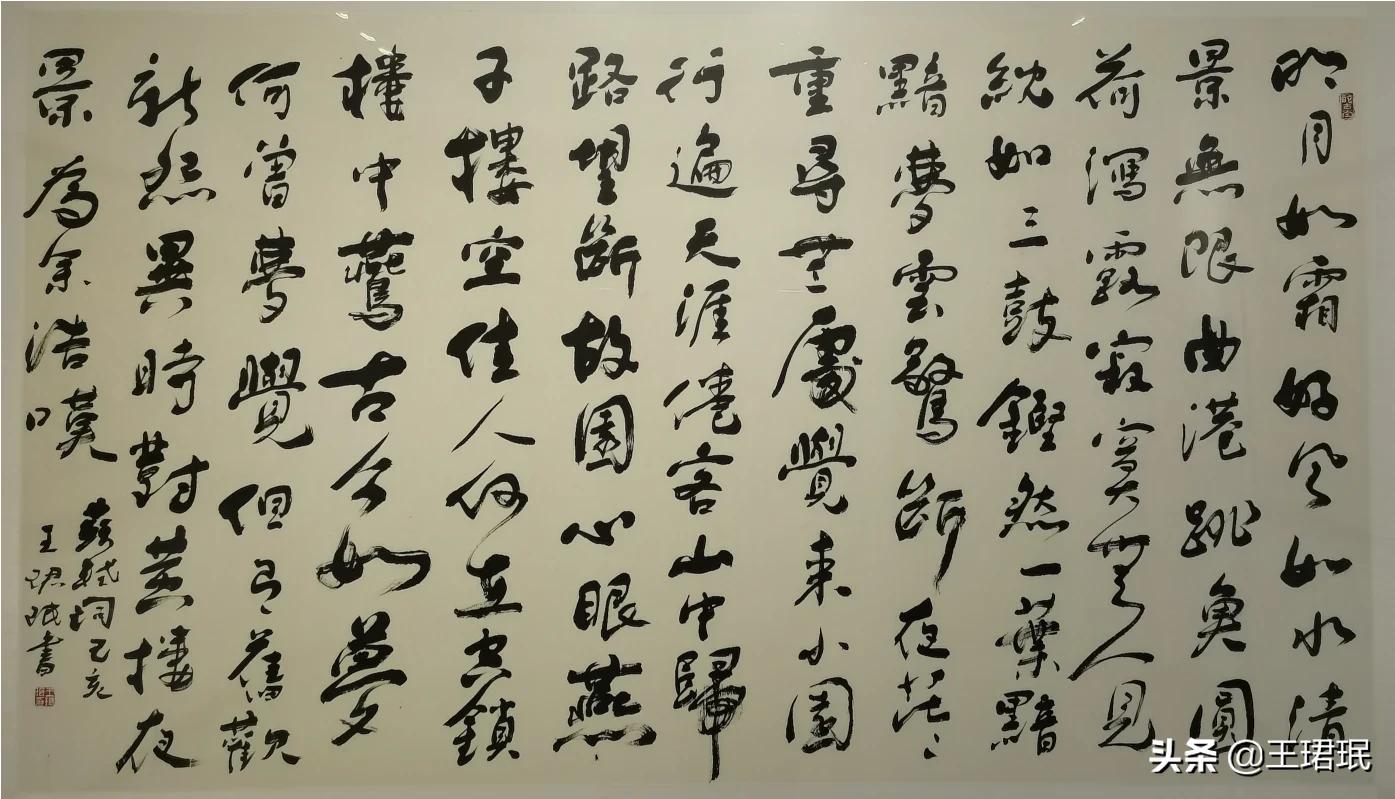 明月如霜好風如水清
景無限曲港跳魚圓
荷瀉露寂寞無人見
紞如三鼓鏗然一葉黯
黯夢雲驚斷夜茫〻
重尋無處覺來小園
行遍天涯倦客山中歸
路望斷故園心眼燕
子樓空佳人何在空鎖
樓中鷰古今如夢
何曾夢覺但有舊歡
新怨異時對黃樓夜
景為余浩嘆
蘇軾詞己亥
王珺珉書
头条 @王珺珉